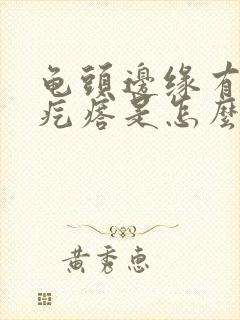 龟頭邊缘有
疙瘩是怎麼
黄秀惠